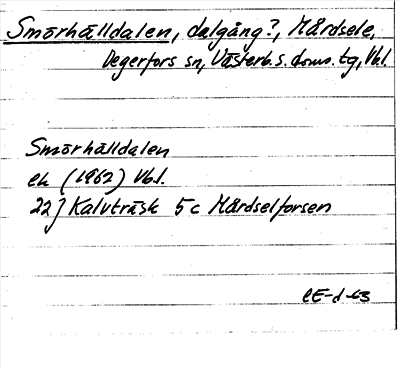 Smörhälldalen, dalgång?, Mårdsele,
Degerfors sn, Västerb.s. doms. tg, Vbl.
Smörhälldalen
ek (1962) Vbl.
22J Kalvträsk 5c Mårdselforsen